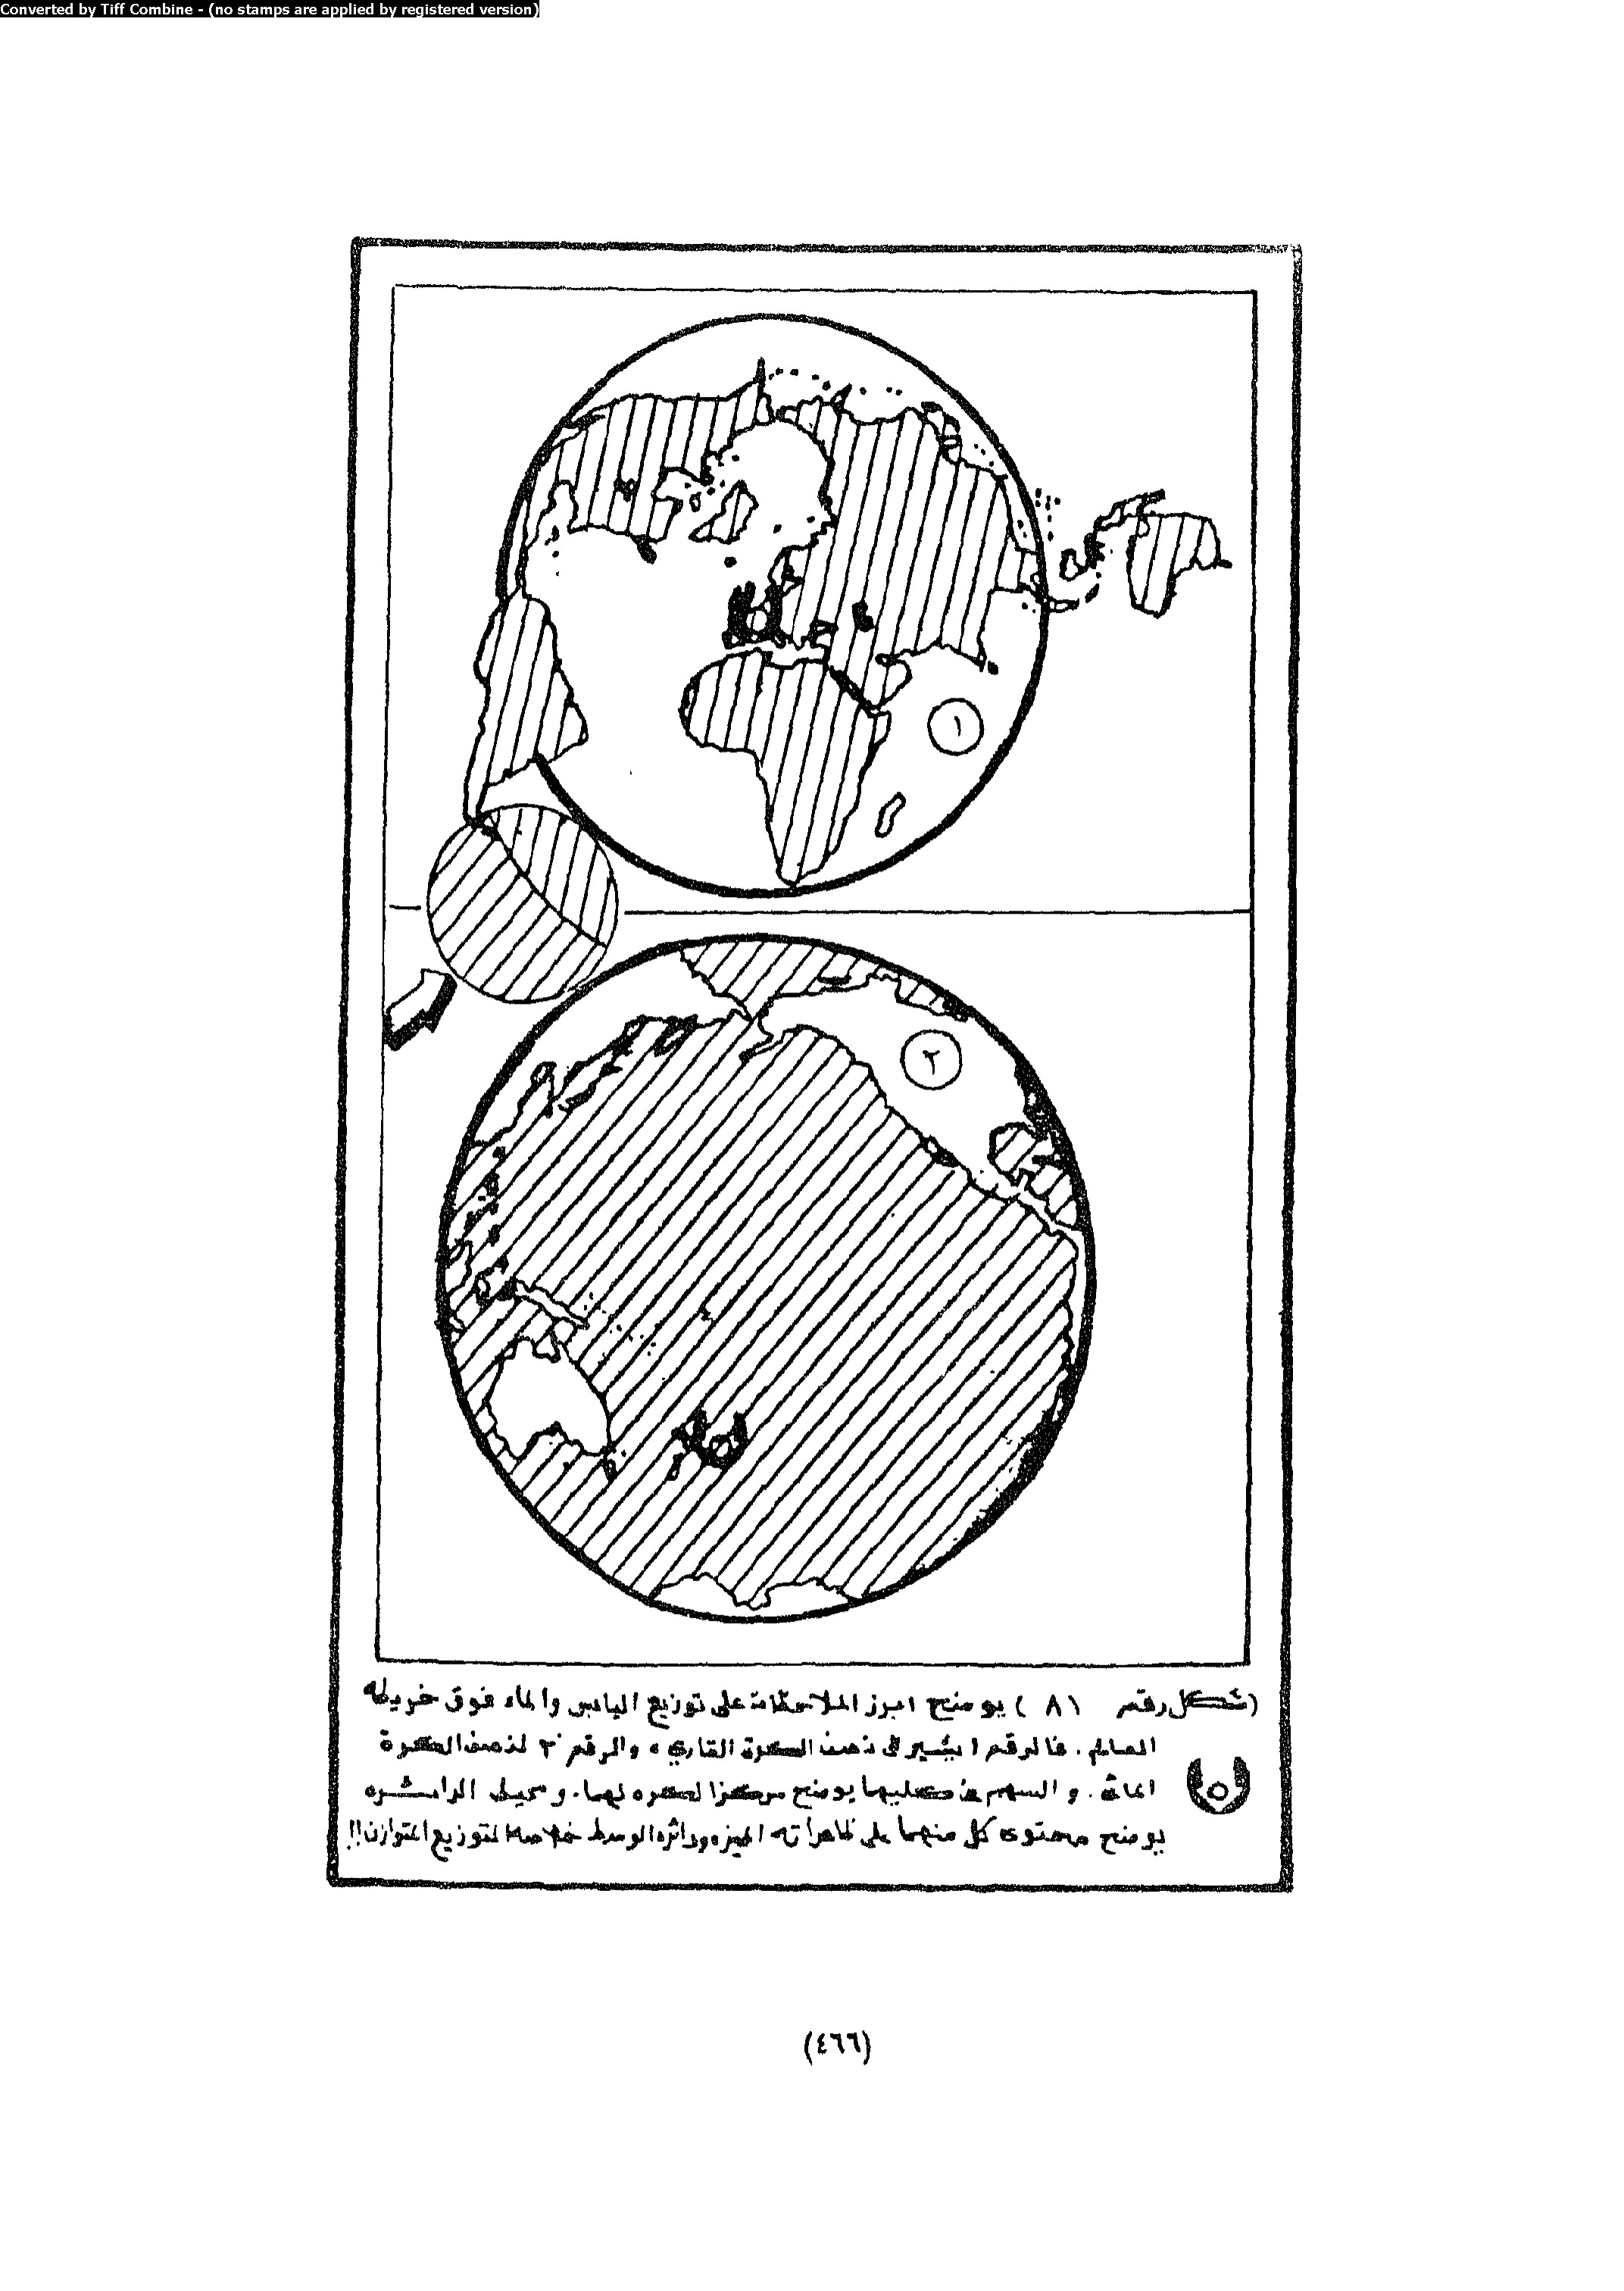 Converted by Tiff Combine - (no stamps are applied by registered version)
١
٢
(شكل رقم ٨١) يوضح ابرز الملاحظات على توزيع اليابس والماء فوق خريطه
العالم. فالرقم ١ يشير الى نصف الكرة القاري، والرقم ٢ لنصف الكرة
المائى. و السهم فى كليهما يوضح مركزا لكره لهما. و محيط الدائره
يوضح محتوى كل منهما على ظاهراته المميزه ودائرة الوسط خلاصة لتوزيع المتوازن!!
(٤٦٦)